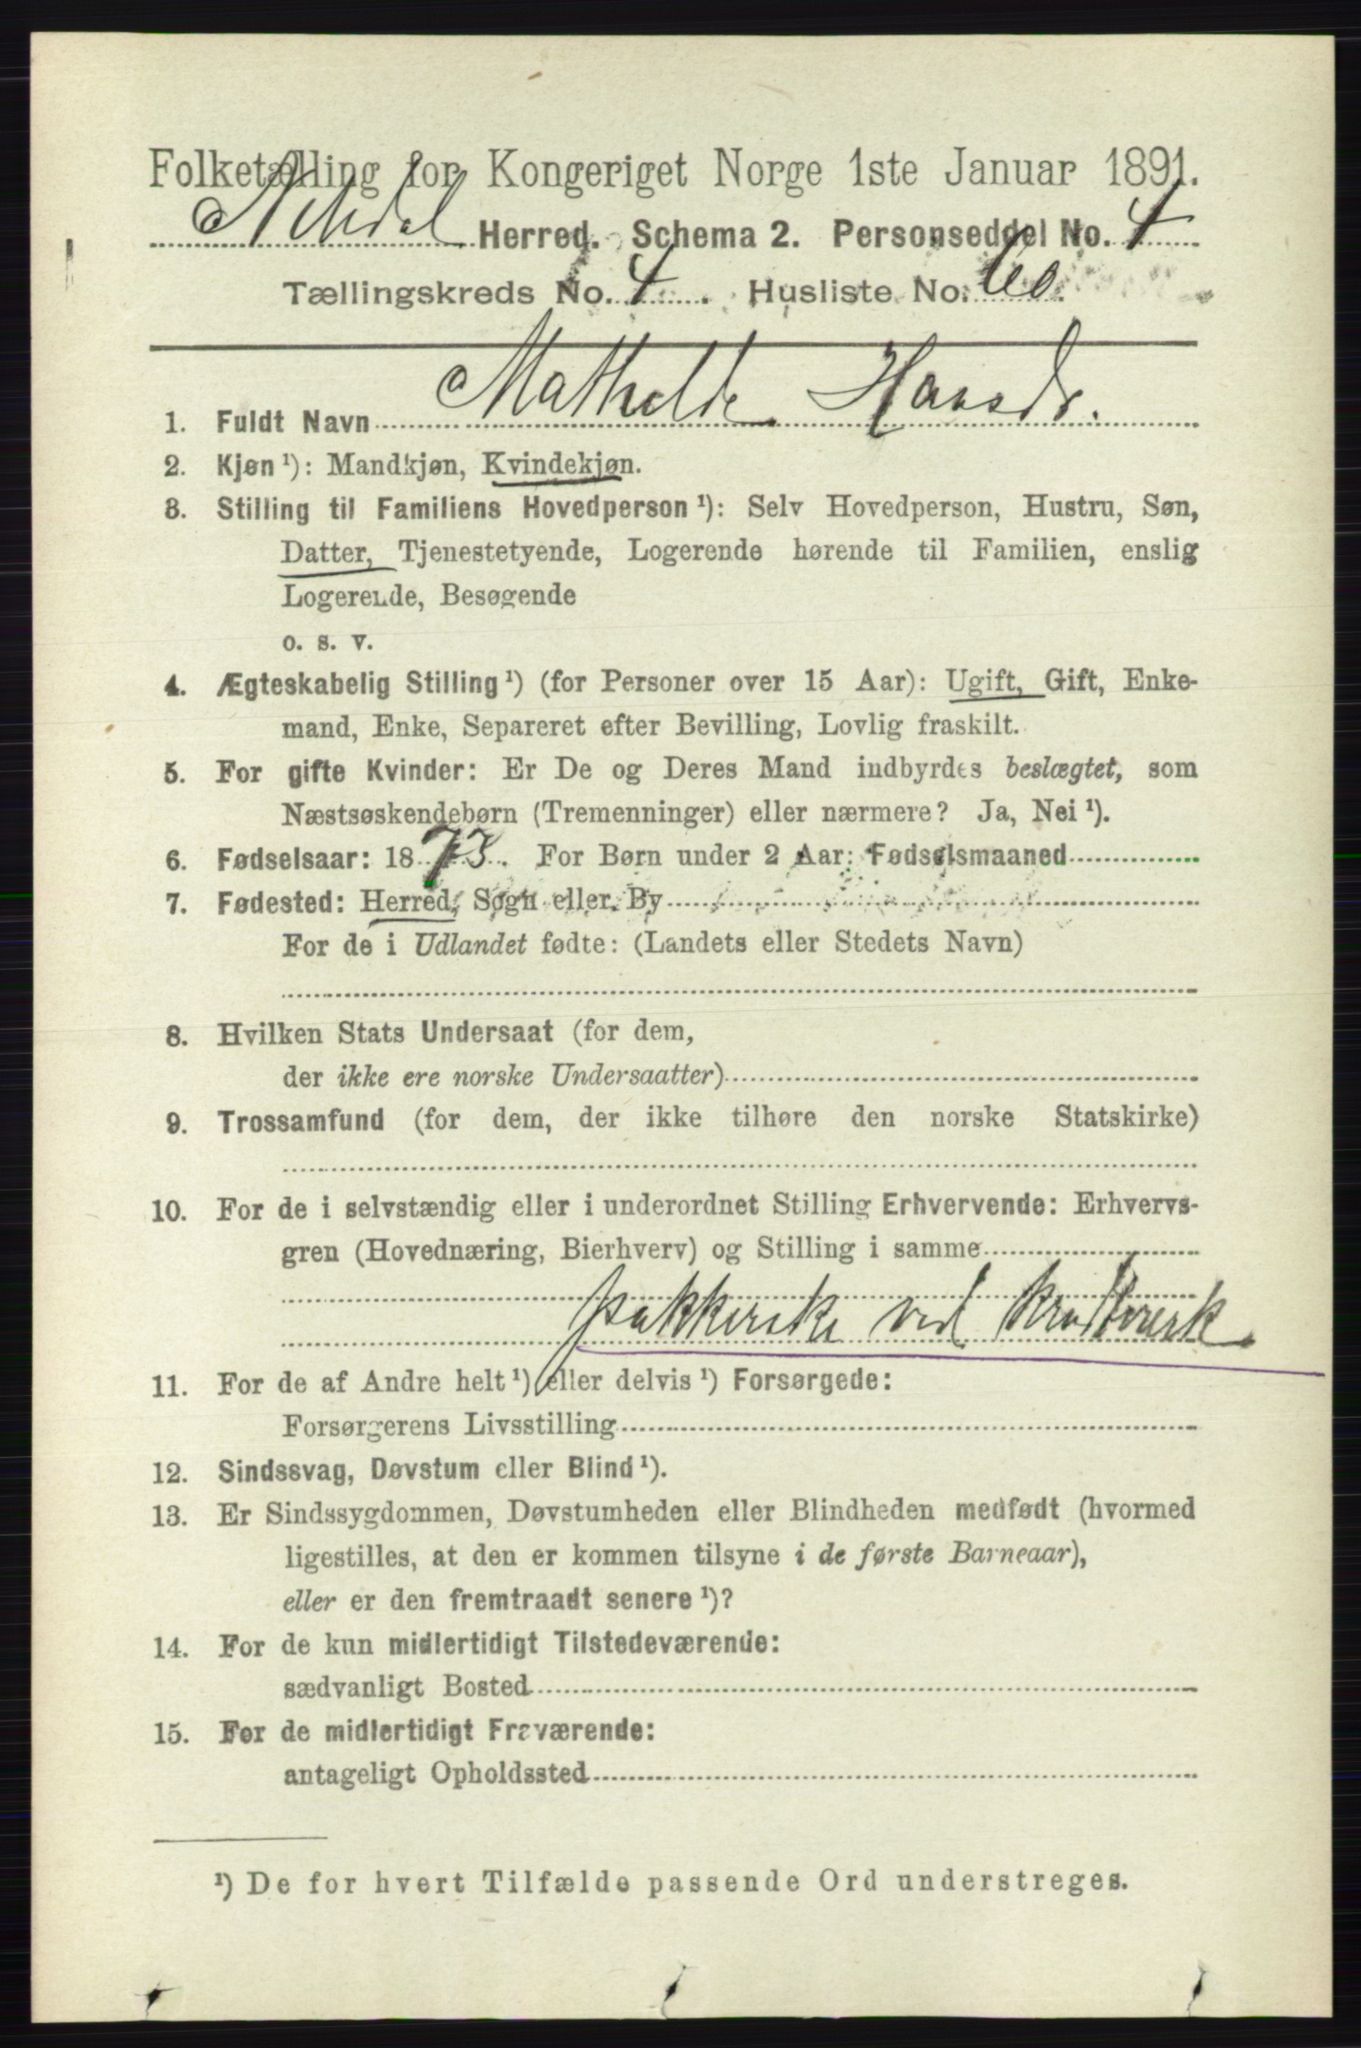 Folketælling for Kongeriget Norge 1ste Januar 1891.
Nitedal Herred. Schema 2. Personseddel No. 4
Tællingskreds No. 4. Husliste No. 60.
1. Fuldt Navn Mathilde Hansdr.
2. Kjøn ¹): Mandkjøn, Kvindekjøn.
3. Stilling til Familiens Hovedperson ¹): Selv Hovedperson, Hustru, Søn,
Datter, Tjenestetyende, Logerende hørende til Familien, enslig
Logerende, Besøgende
o. s. v.
4. Ægteskabelig Stilling ¹) (for Personer over 15 Aar): Ugift, Gift, Enke-
mand, Enke, Separeret efter Bevilling, Lovlig fraskilt.
5. For gifte Kvinder: Er De og Deres Mand indbyrdes beslægtet, som
Næstsøskendebørn (Tremenninger) eller nærmere? Ja, Nei ¹).
6. Fødselsaar: 1873. For Børn under 2 Aar: Fødselsmaaned
7. Fødested: Herred, Sogn eller By
For de i Udlandet fødte: (Landets eller Stedets Navn)
8. Hvilken Stats Undersaat (for dem,
der ikke ere norske Undersaatter)
9. Trossamfund (for dem, der ikke tilhøre den norske Statskirke)
10. For de i selvstændig eller i underordnet Stilling Erhvervende: Erhvervs-
gren (Hovednæring, Bierhverv) og Stilling i samme
pakkerske ved Krudtverk
11. For de af Andre helt ¹) eller delvis ¹) Forsørgede:
Forsørgerens Livsstilling
12. Sindssvag, Døvstum eller Blind ¹).
13. Er Sindssygdommen, Døvstumheden eller Blindheden medfødt (hvormed
ligestilles, at den er kommen tilsyne i de første Barneaar),
eller er den fremtraadt senere ¹)?
14. For de kun midlertidigt Tilstedeværende:
sædvanligt Bosted
15. For de midlertidigt Fraværende:
antageligt Opholdssted
¹) De for hvert Tilfælde passende Ord understreges.